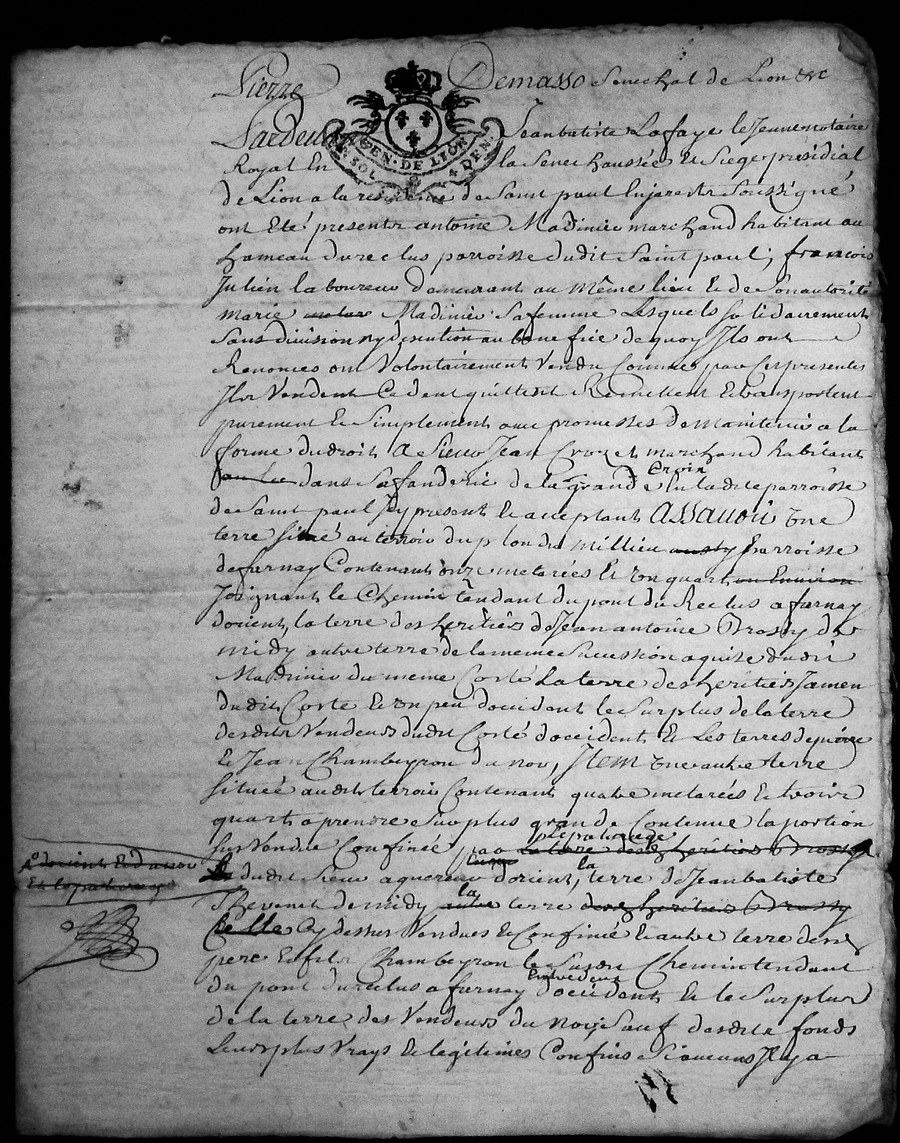 Pierre Demasso Senechal de Lion &c
Pardevant Jeanbatiste Lafaye le Jeune notaire
GEN · DE LYON
SOL DEN
Royal En la Senechaussée Et Siege presidial
de Lion a la residence de Saint paul Enjarestz Soussigné
ont Eté presents antoine Madinier marchand habitant au
hameau dureclus parroisse dudit Saint paul, francois
Julien laboureur demeurant au même lieu Et de Son autorité
marie Madinier Safemme Lesquels solidairement
Sans division ny discution au benefice de quoy Ils ont
Renonces ont Volontairement Vendu Comme par Ces presentes
Ils Vendent Cedent quittent Remettent Et transportent
purement Et Simplement avec promesses de maintenir a la
forme dudroit A Sieur Jean Crozet marchand habitant
dans Safanderie de la grande Croix En ladite parroisse
de Saint paul Icy present Et acceptant Assavoir Une
terre situé au terroir du plond millieu parroisse
de farnay Contenant onze metarées Et Un quart ou Environ
Joignant le Chemin tendant du pont du Reclus a farnay
dorient, la terre des heritiers de Jean antoine Brossy de
midy autre terre de lameme Sucession aquise dudit
Madinier du meme Coté La terre des heritiers Jamen
dudit Coté Et Un peu doccident le Surplus de la terre
desdits Vendeurs dudit Coté doccident Et Les terres de
Et Jean Chambeyron du nord, Item Une autre terre
située audit terroir Contenant quatre metarées Et trois
quarts a prendre Sur plus grande Contenue la portion
sus Vendue Confinée par la terre des heritiers Brossy
dudit Sieur aquereur dorient, la terre de Jeanbatiste
Thevenet de midy la terre des heritiers Brossy
Celle Cy dessus Vendues Et Confinée Et autre terre des
pere Et fils Chambeyron le Susdit Chemin tendant
du pont dureclus a farnay Entredeux doccident Et le Surplus
de la terre des Vendeurs du nord Sauf desdits fonds
Leurs plus Vrays Et legitimes Confins Si aucuns Il y a